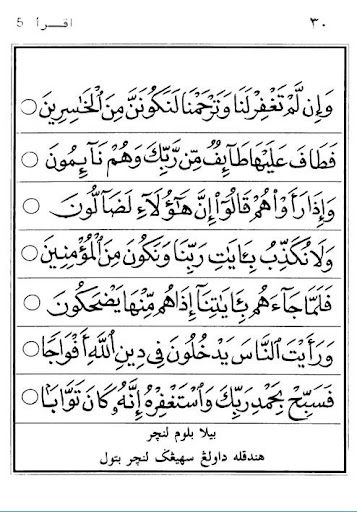 ٣٠ اقـرأ 5
وَإِن لَّمْ تَغْفِرْ لَنَا وَتَرْحَمْنَا لَنَكُونَنَّ مِنَ ٱلْخَـٰسِرِينَ ○
فَطَافَ عَلَيْهَا طَآئِفٌ مِّن رَّبِّكَ وَهُمْ نَآئِمُونَ ○
وَإِذَا رَأَوْهُمْ قَالُوٓا۟ إِنَّ هَـٰٓؤُلَآءِ لَضَآلُّونَ ○
وَلَا نُكَذِّبَ بِـَٔايَـٰتِ رَبِّنَا وَنَكُونَ مِنَ ٱلْمُؤْمِنِينَ ○
فَلَمَّا جَآءَهُم بِـَٔايَـٰتِنَآ إِذَا هُم مِّنْهَا يَضْحَكُونَ ○
وَرَأَيْتَ ٱلنَّاسَ يَدْخُلُونَ فِى دِينِ ٱللَّهِ أَفْوَاجًا ○
فَسَبِّحْ بِحَمْدِ رَبِّكَ وَٱسْتَغْفِرْهُ إِنَّهُۥ كَانَ تَوَّابًۢا ○
بيلا بلوم لنچر
هندقله داولڠ سهيڠݢ لنچر بتول